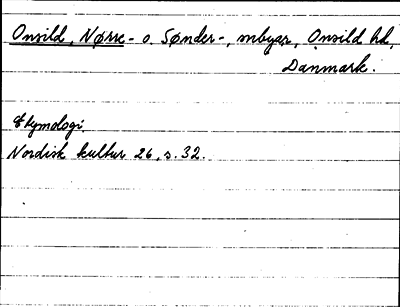 Onsild, Nørre- o. Sønder-, mbyar, Onsild hd,
Danmark.
Etymologi.
Nordisk kultur 26, s. 32.